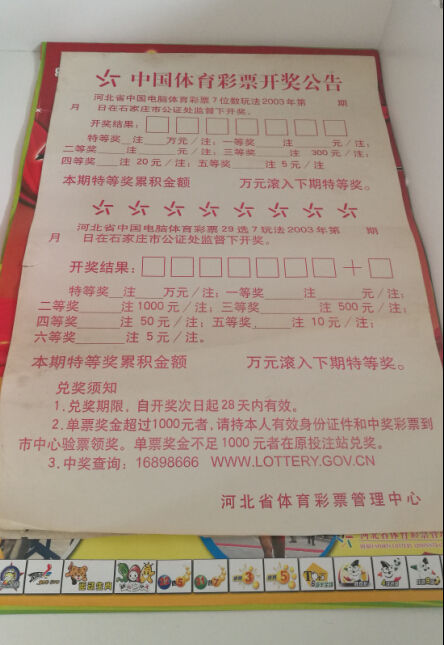 中国体育彩票开奖公告
河北省中国电脑体育彩票7位数玩法2003年第 期
月 日在石家庄市公证处监督下开奖。
开奖结果:
特等奖__注__万元/注;一等奖____注____元/注;
二等奖____注____元/注;三等奖____注 300元/注;
四等奖____注 20元/注;五等奖____注 5元/注
本期特等奖累积金额 万元滚入下期特等奖。
河北省中国电脑体育彩票29选7玩法2003年第 期
月 日在石家庄市公证处监督下开奖。
开奖结果: +
特等奖__注____万元/注;一等奖____注____元/注;
二等奖____注1000元/注;三等奖____注 500元/注;
四等奖____注 50元/注;五等奖____注 10元/注;
六等奖____注 5元/注。
本期特等奖累积金额 万元滚入下期特等奖。
兑奖须知
1.兑奖期限,自开奖次日起28天内有效。
2.单票奖金超过1000元者,请持本人有效身份证件和中奖彩票到
市中心验票领奖。单票奖金不足1000元者在原投注站兑奖。
3.中奖查询:16898666 WWW.LOTTERY.GOV.CN
河北省体育彩票管理中心